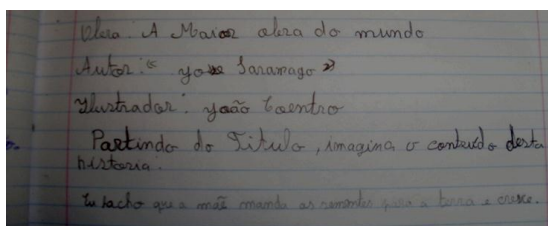 Obra: A Maior obra do mundo
Autor: "José Saramago"
Ilustrador: João Caentro
Partindo do Titulo, imagina o conteúdo desta
história.
Eu bacho que a mãe manda as sementes para a terra e cresce.